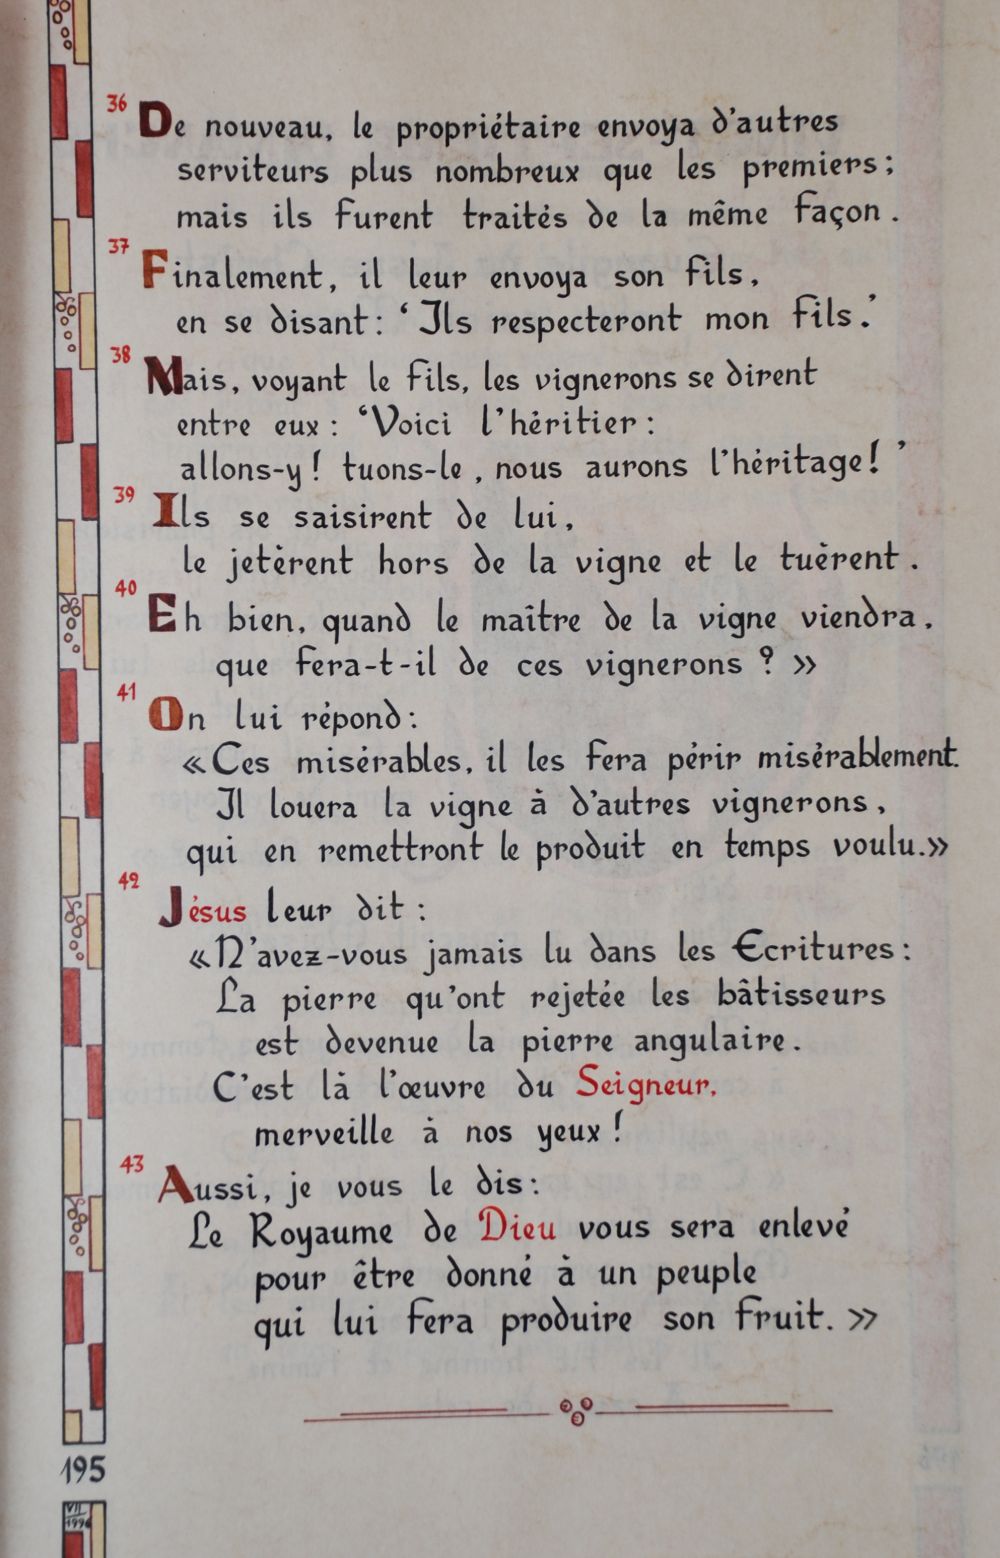 36 De nouveau, le propriétaire envoya d'autres
serviteurs plus nombreux que les premiers ;
mais ils furent traités de la même façon .
37 Finalement, il leur envoya son fils,
en se disant : ‘ Ils respecteront mon fils.’
38 Mais, voyant le fils, les vignerons se dirent
entre eux : ‘Voici l'héritier :
allons-y ! tuons-le , nous aurons l'héritage! ’
39 Ils se saisirent de lui,
le jetèrent hors de la vigne et le tuèrent .
40 Eh bien, quand le maître de la vigne viendra,
que fera-t-il de ces vignerons ? »
41 On lui répond :
« Ces misérables, il les fera périr misérablement.
Il louera la vigne à d'autres vignerons,
qui en remettront le produit en temps voulu.»
42 Jésus leur dit :
« N'avez-vous jamais lu dans les Ecritures :
La pierre qu'ont rejetée les bâtisseurs
est devenue la pierre angulaire .
C'est là l'œuvre du Seigneur,
merveille à nos yeux !
43 Aussi, je vous le dis :
Le Royaume de Dieu vous sera enlevé
pour être donné à un peuple
qui lui fera produire son fruit. »
195
VII
1996